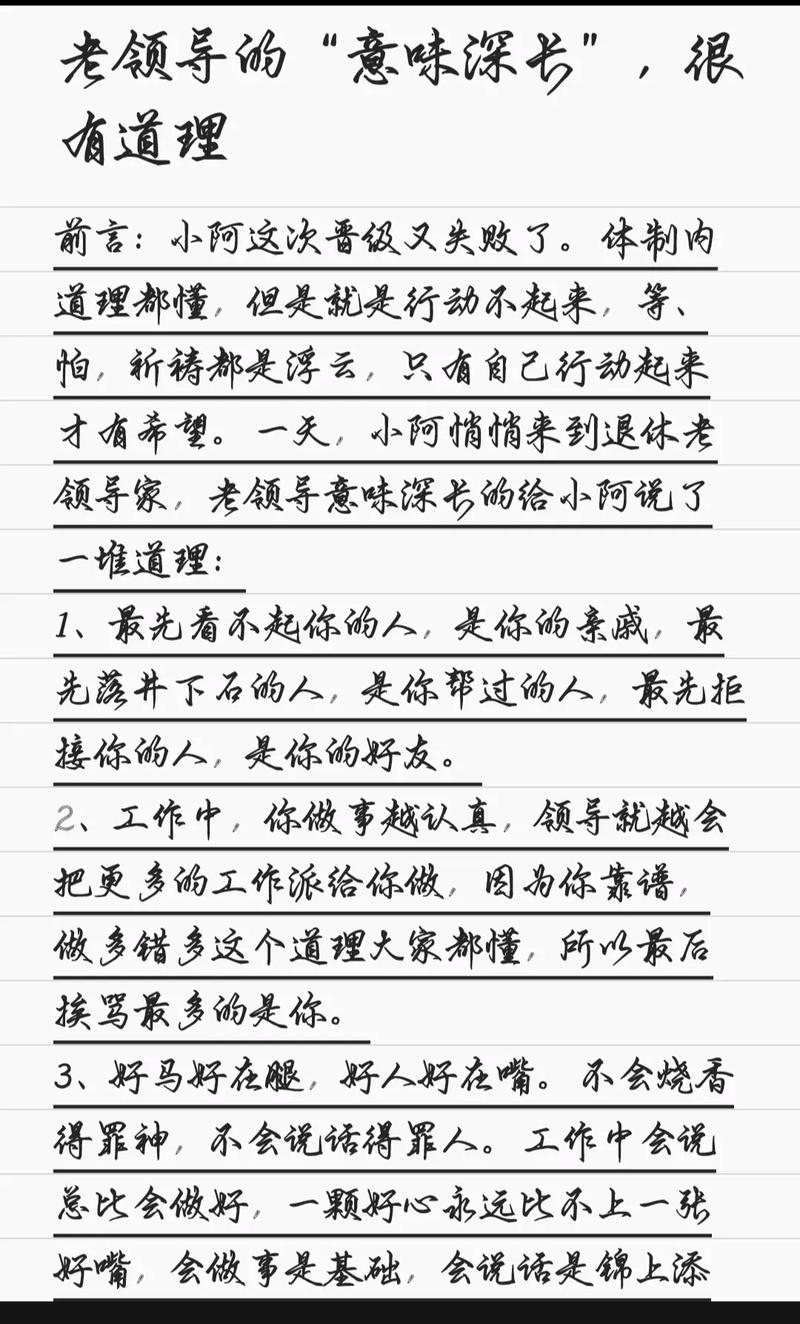 老领导的“意味深长”，很
有道理
前言：小阿这次晋级又失败了。体制内
道理都懂，但是就是行动不起来，等、
怕，祈祷都是浮云，只有自己行动起来
才有希望。一天，小阿悄悄来到退休老
领导家，老领导意味深长的给小阿说了
一堆道理：
1、最先看不起你的人，是你的亲戚，最
先落井下石的人，是你帮过的人，最先拒
接你的人，是你的好友。
2、工作中，你做事越认真，领导就越会
把更多的工作派给你做，因为你靠谱，
做多错多这个道理大家都懂，所以最后
挨骂最多的是你。
3、好马好在腿，好人好在嘴。不会烧香
得罪神，不会说话得罪人。工作中会说
总比会做好，一颗好心永远比不上一张
好嘴，会做事是基础，会说话是锦上添